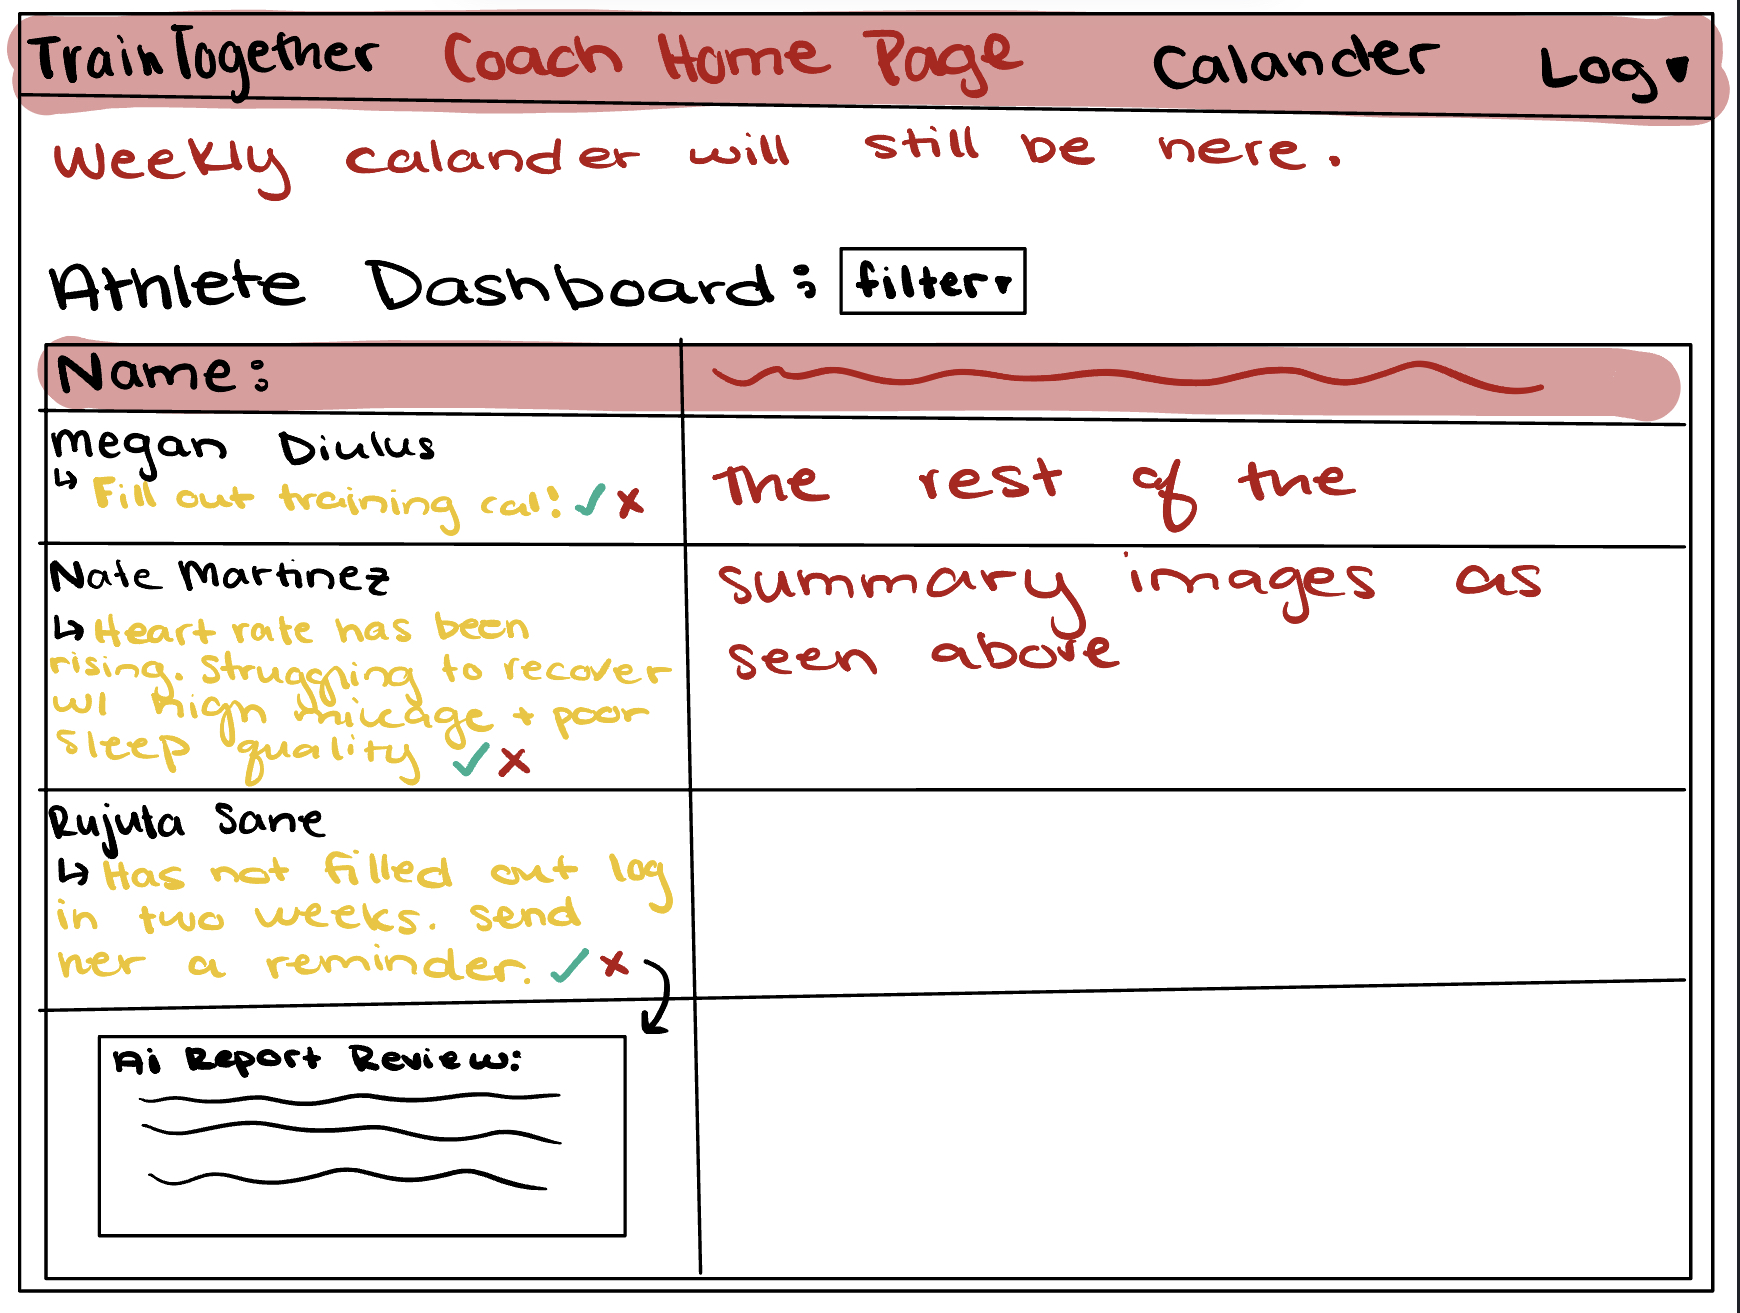 TrainTogether Coach Home Page Calander Log
Weekly calander will still be here.
Athlete Dashboard: filter
Name:
Megan Diulus
Fill out training cal!
The rest of the
Nate Martinez
Heart rate has been
rising. Struggning to recover
w/ high mileage + poor
sleep quality
summary images as
seen above
Rujuta Sane
Has not filled out log
in two weeks. Send
her a reminder.
Ai Report Review: